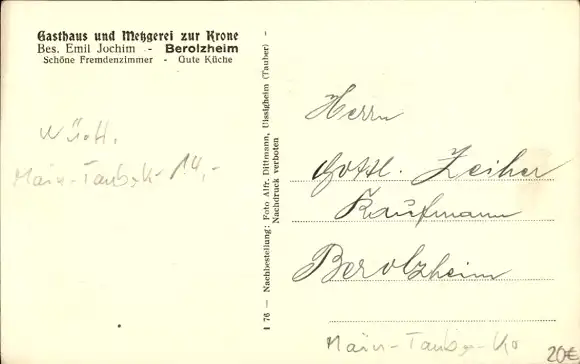 Gasthaus und Metzgerei zur Krone
Bes. Emil Jochim - Berolzheim
Schöne Fremdenzimmer - Gute Küche
Württ.
Main-Taub.K 14,-
1 76 — Nachbestellung: Foto Alfr. Dittmann, Uissigheim (Tauber) —
Nachdruck verboten
Herrn
Gottl. Zeiher
Kaufmann
Berolzheim
Main-Tauber-Kr
20€